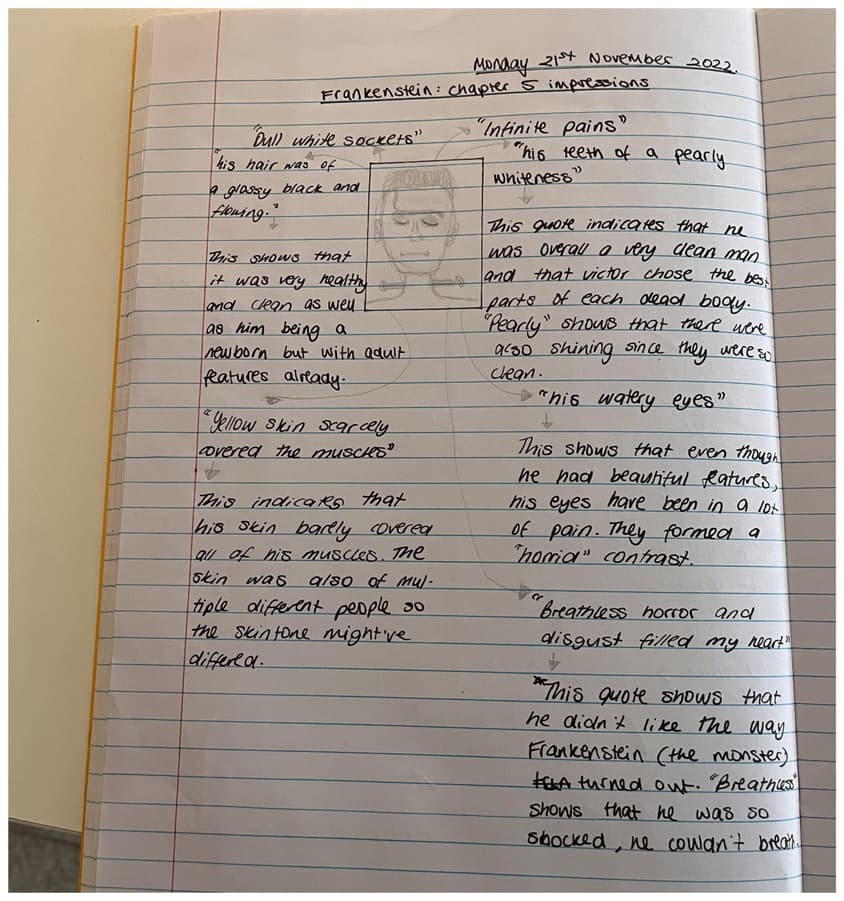 Monday 21st November 2022.
Frankenstein: chapter 5 impressions
"Dull white sockets"
"his hair was of
a glassy black and
flowing."
This shows that
it was very healthy
and clean as well
as him being a
newborn but with adult
features already.
"Yellow skin scarcely
covered the muscles"
This indicates that
his skin barely covered
all of his muscles. The
skin was also of mul-
tiple different people so
the skintone might've
differed.
"Infinite pains"
"his teeth of a pearly
whiteness"
This quote indicates that he
was overall a very clean man
and that victor chose the best
parts of each dead body.
"Pearly" shows that there were
also shining since they were so
clean.
"his watery eyes"
This shows that even though
he had beautiful features,
his eyes have been in a lot
of pain. They formed a
"horrid" contrast.
"Breathless horror and
disgust filled my heart"
This quote shows that
he didn't like the way
Frankenstein (the monster)
turned out. "Breathless"
shows that he was so
shocked, he couldn't breath.